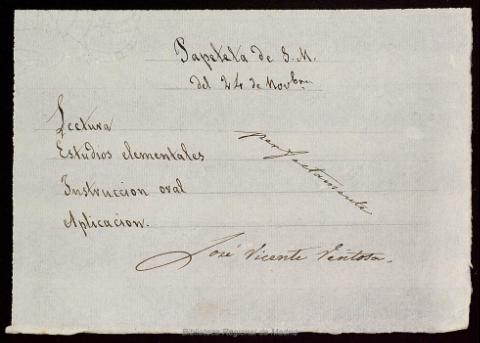 Papeleta de S. M.
del 24 de Novbre
Lectura
Estudios elementales
Instruccion oral
Aplicacion.
perfectamente
José Vicente Ventosa.
Biblioteca Regional de Madrid